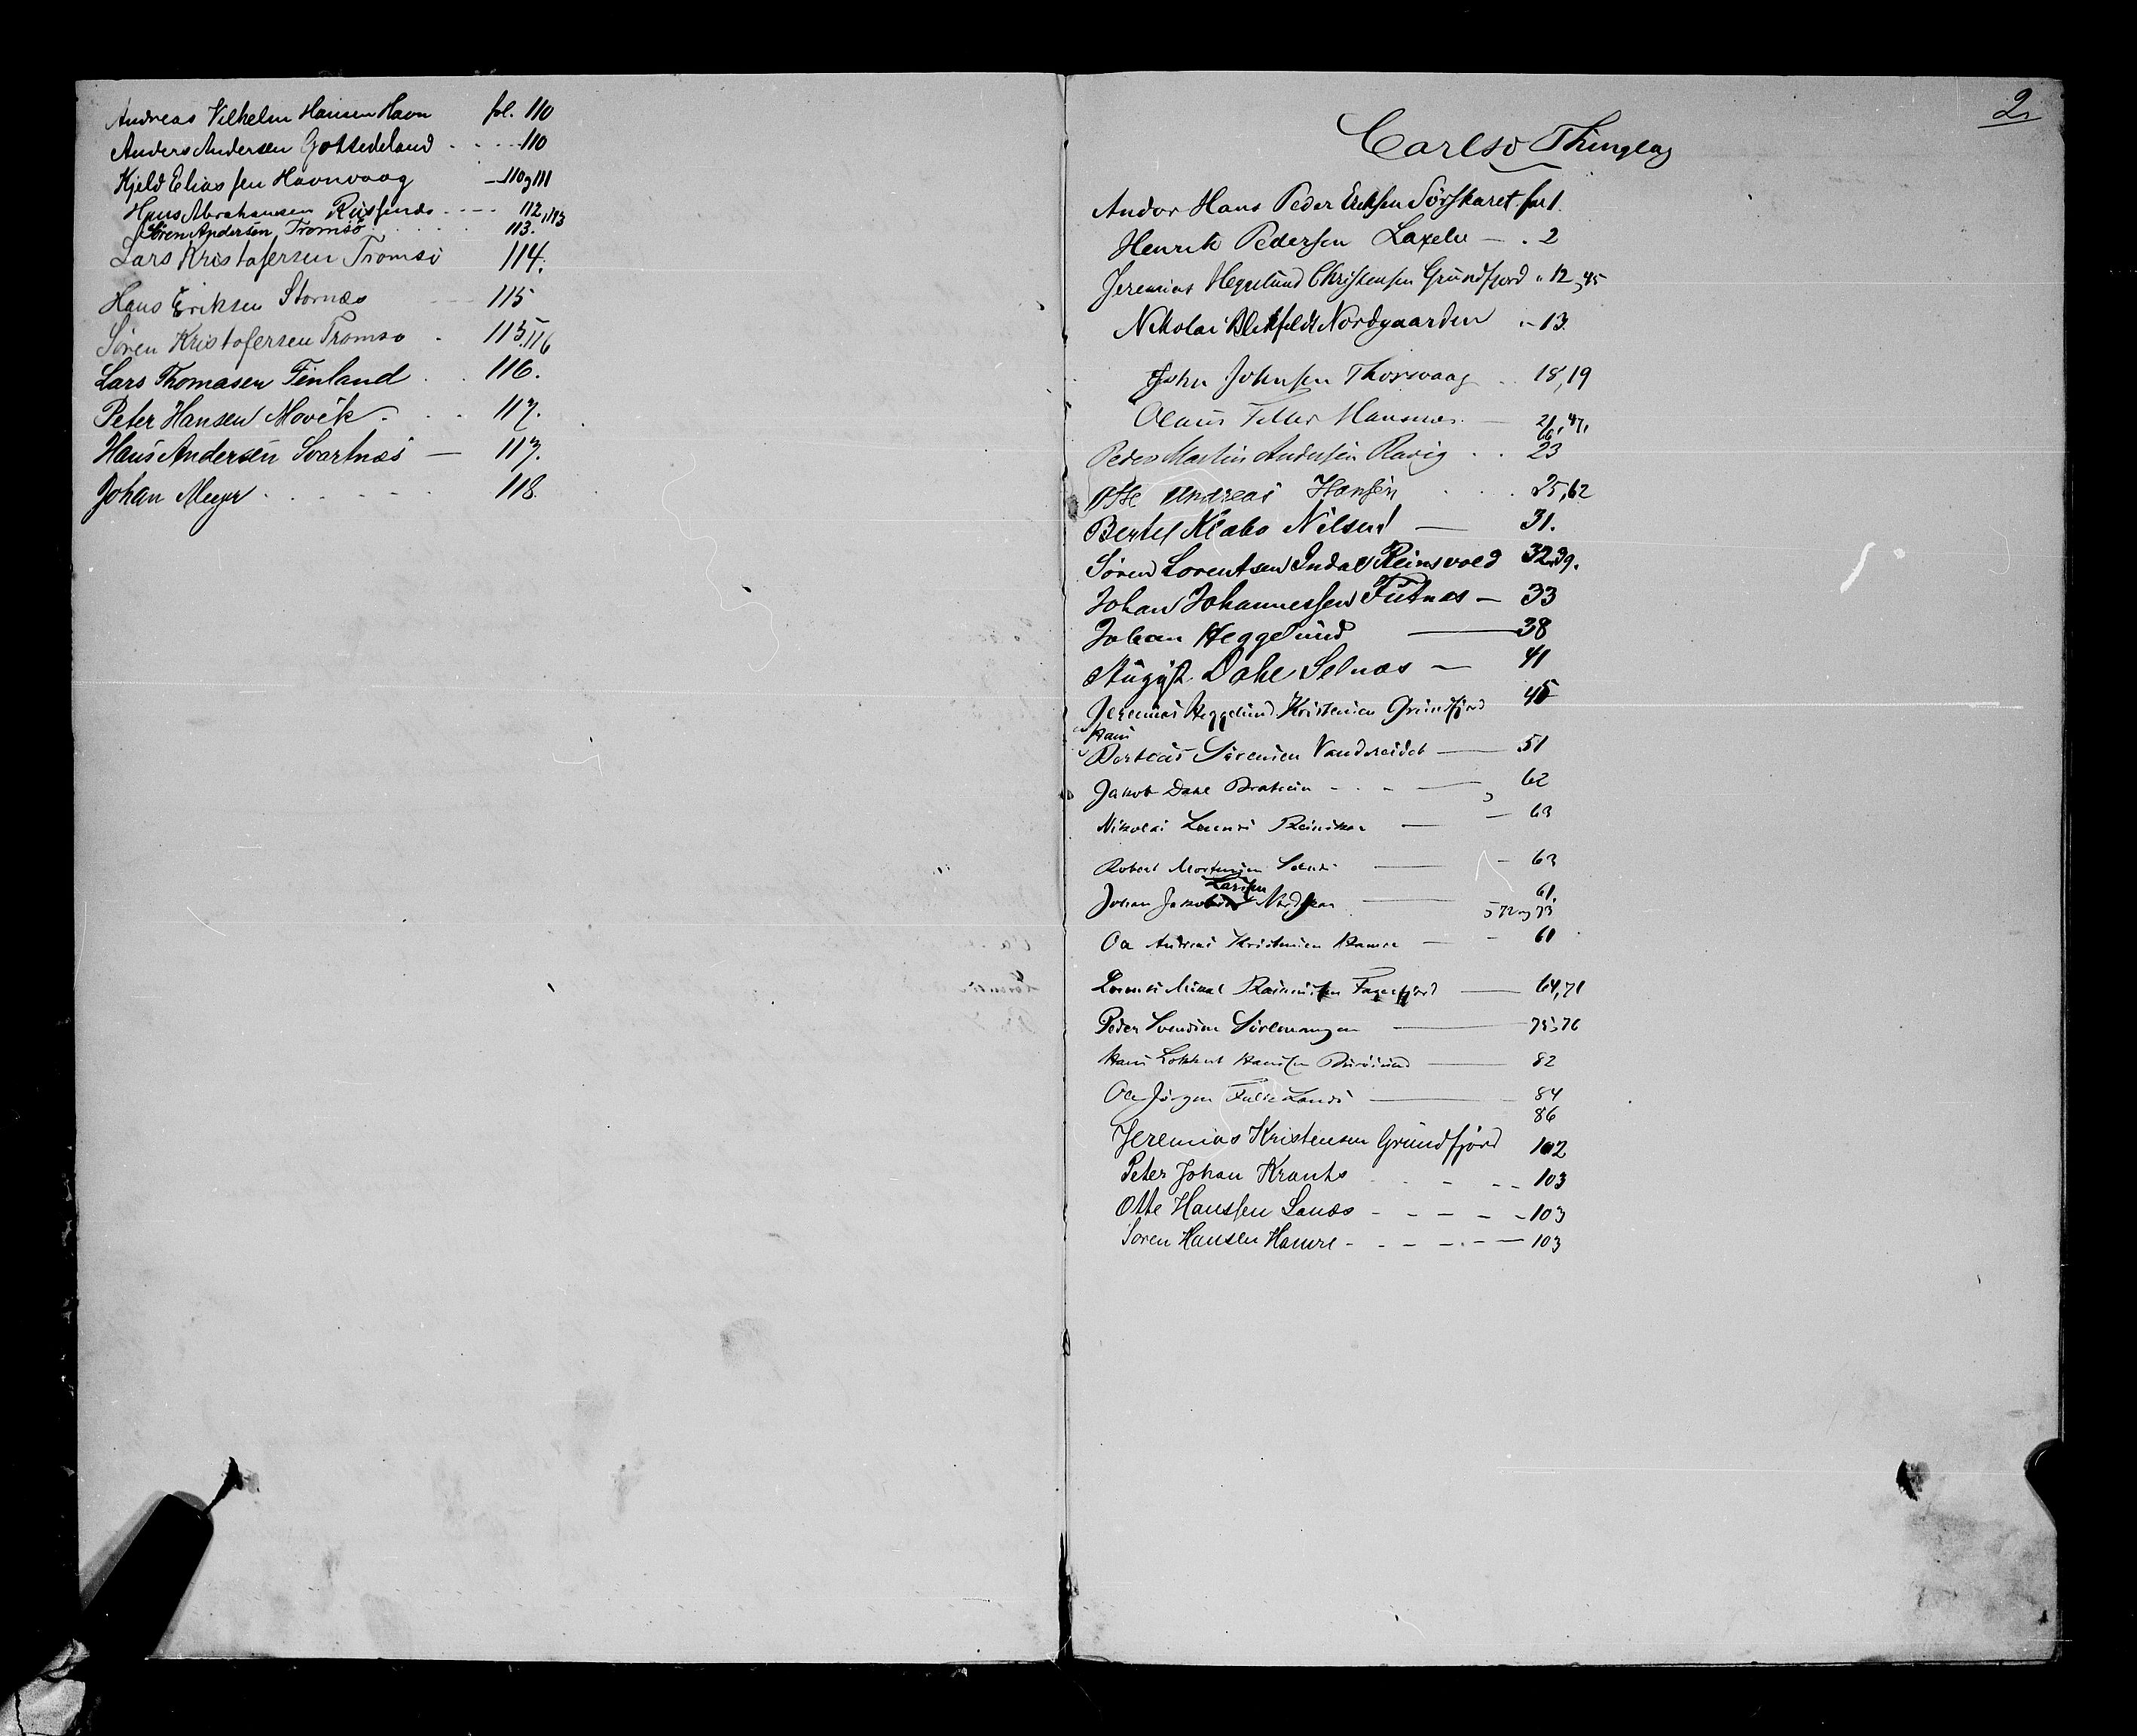 Andreas Vilhelm Hansen Havn fol. 110
Anders Andersen Gottedeland . . . . 110
Kjeld Eliassen Havnvaag — 110 og 111
Hans Abrahamsen Risfnæs . . . . 112, 113
Søren Andersen, Tromsö . . . . 113.
Lars Kristofersen Tromsö 114.
Hans Eriksen Stornæs 115
Søren Kristofersen Tromsø . 115, 116
Lars Thomasen Finland . . 116.
Peter Hansen Movik . . . 117.
Hans Andersen Svartnæs — 117.
Johan Meyer . . . . . . 118.
2.
Carlsö Thinglag
Andor Hans Peder Eriksen Sörskaret fol 1.
Henrik Pedersen Laxelv — . 2
Jeremias Hegelund Christensen Grundfjord " 12, 45
Nikolai Blikfeldt Nordgaarden " 13.
John Johnsen Thorsvaag . . 18, 19
Olaus Hansnes — 21, 47,
66,
Peder Martin Andersen Ravig . . 23
Otte Andreas Hansen . . . . 25, 62
Bertel Klabo Nilsen — 31.
Søren Lorentsen Indal Reinsvold 32, 39.
Johan Johannessen Futnæs — 33
Johan Heggelund — 38
August Dahl Selnæs — 41
Jeremias Heggelund Kristensen Grundfjord 45
Hans
Berteas Sørensen Vandereidet — 51
Jakob Dahl . . . — 62
Nikolai Reinskar — — 63
Robert Mortensen — — 63
Larssen
Johan Nordskar — 61.
572 og 73
Ole Andreas Kristensen Hamre — - 61
Mikal Fagerfjord — 64, 71
Peder Svendsen — 75, 76
Hans Lokkert Hansen — 82
Ole Jørgen — 84
86
Jeremias Kristensen Grundfjörd 102
Peter Johan Krants . . - - - 103
Otte Hanssen Sanæs - - - - - 103
Søren Hansen Hamre - - - - - — 103